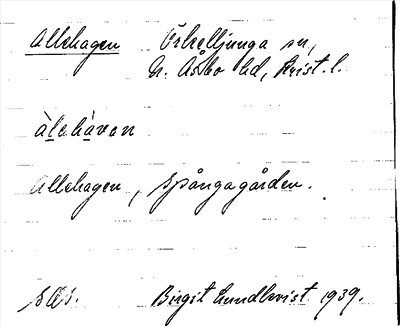 Allehagen Örkelljunga sn,
N. Åsbo hd, Krist. l.
àlehàvan
Allehagen, Spångagården.
Birgit Lundkvist 1939.